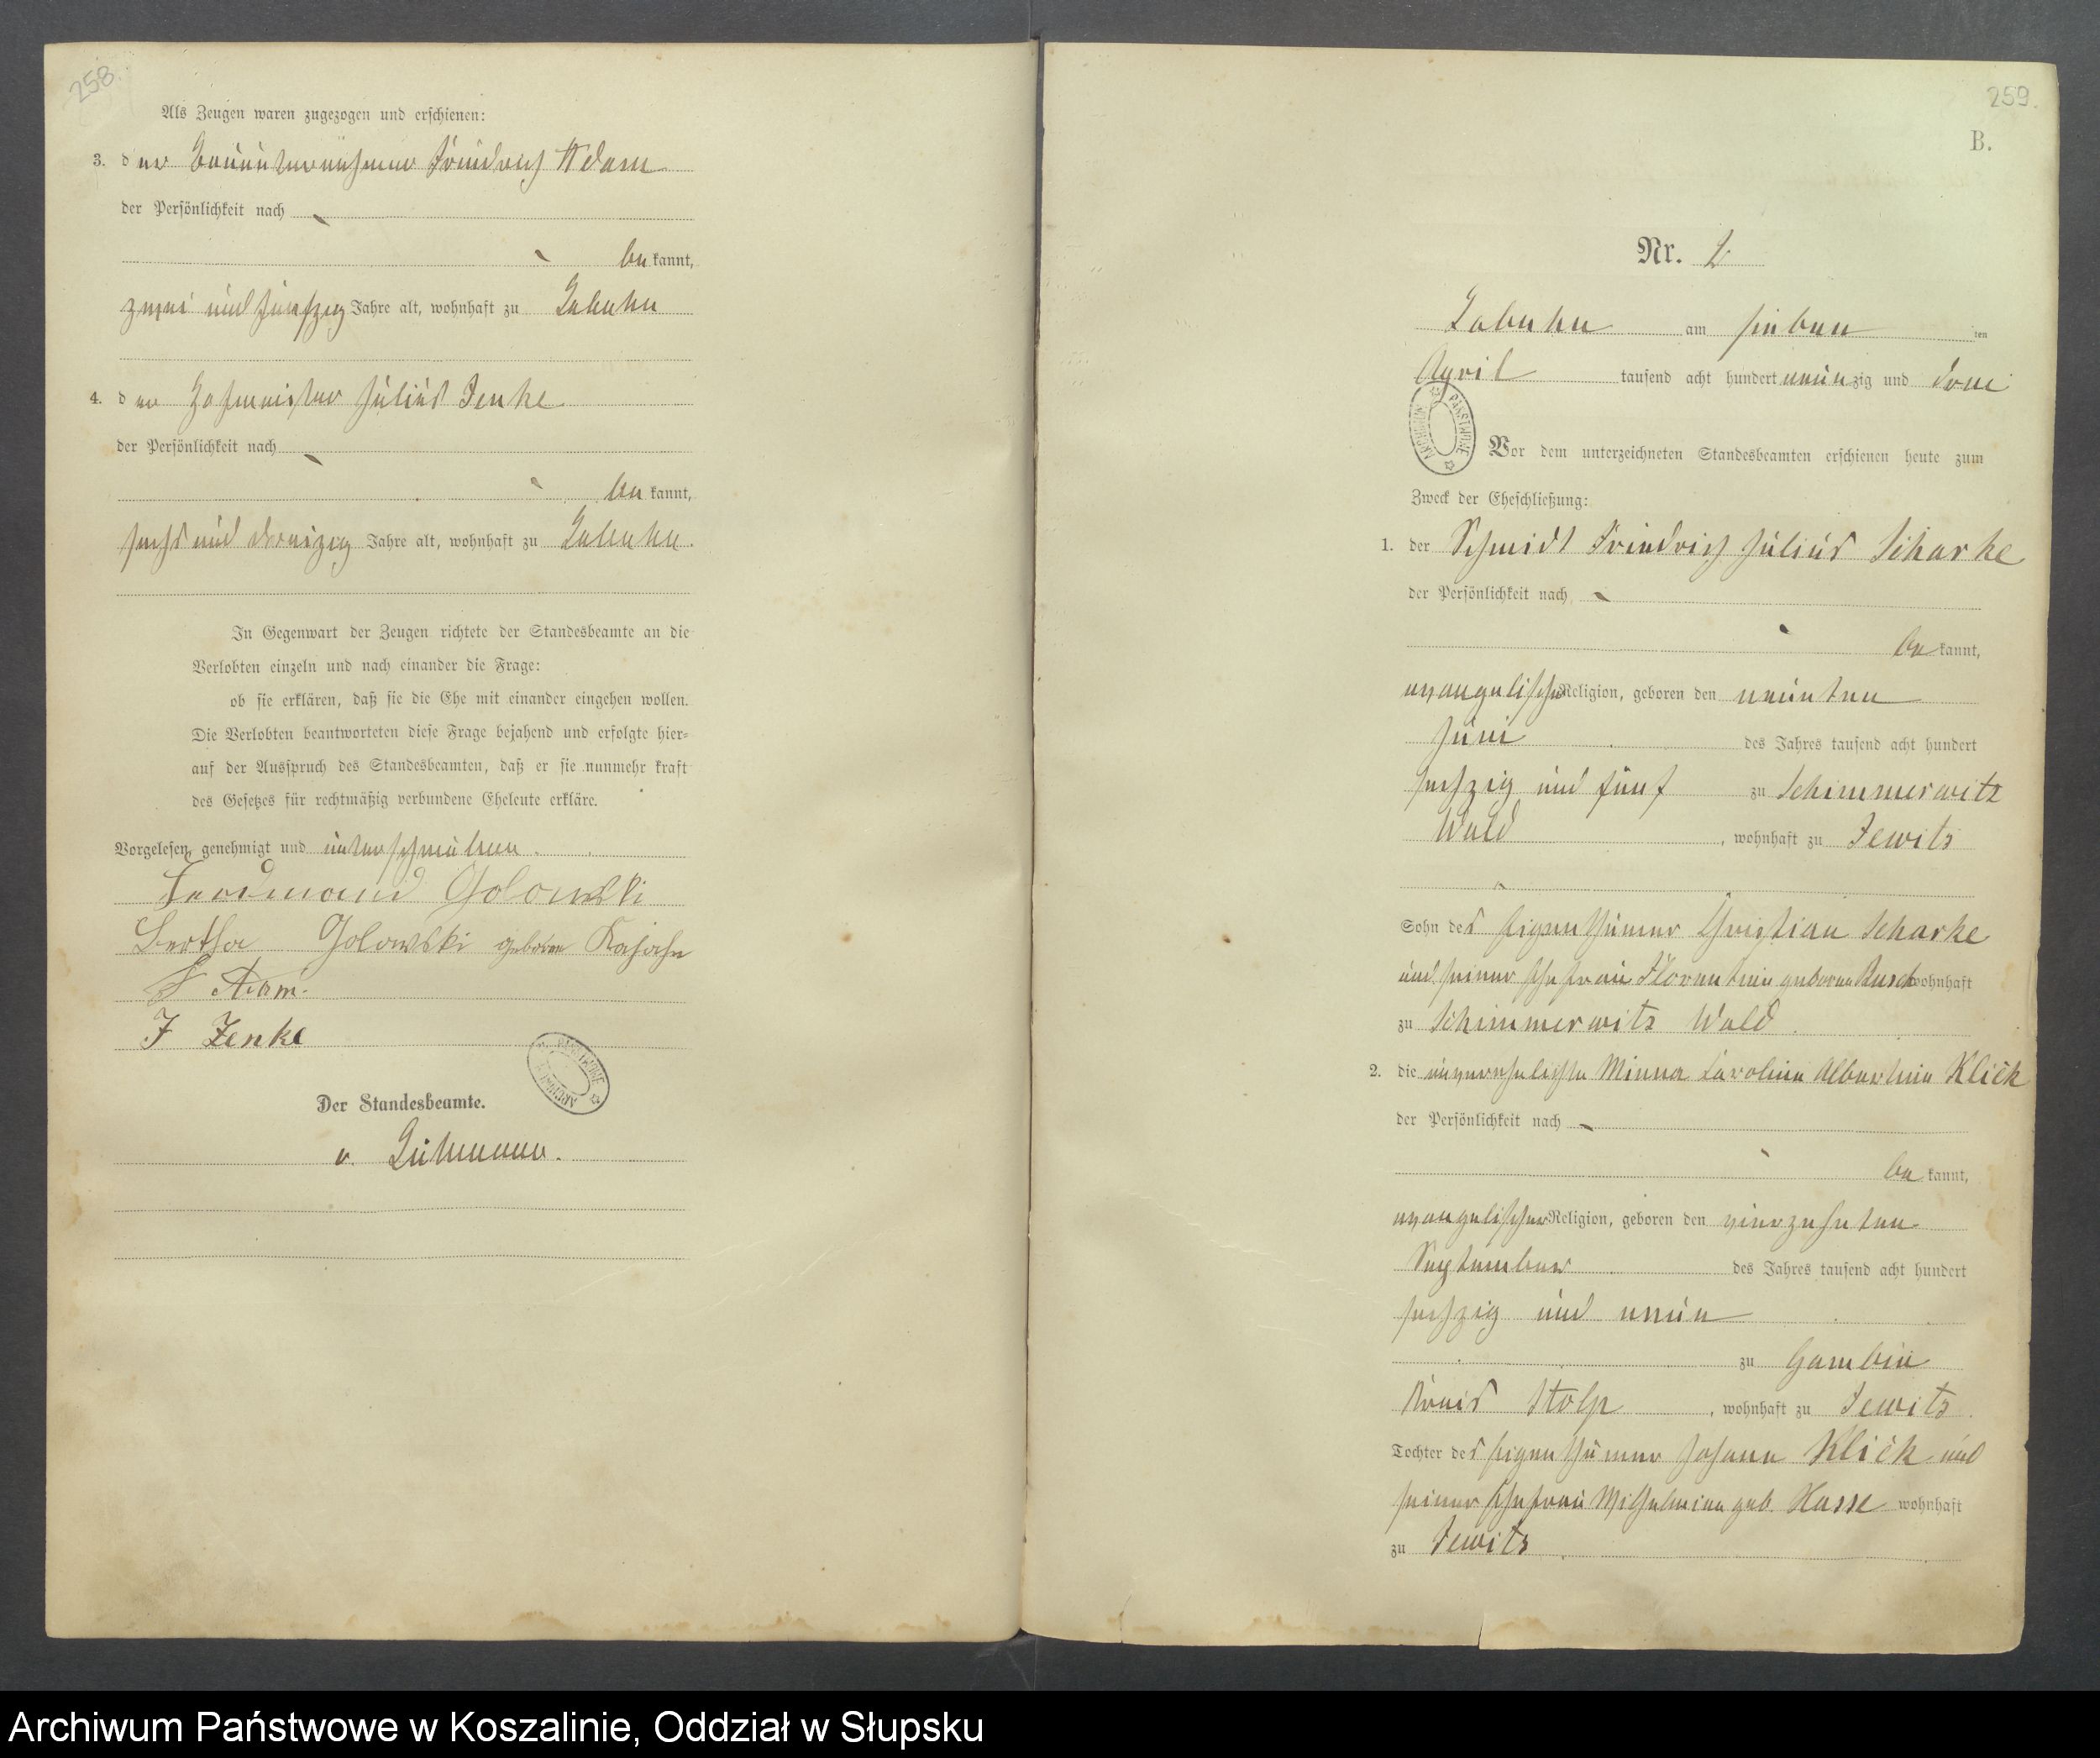 258.
Als Zeugen waren zugezogen und erschienen:
3. der Bauunternehmer Friedrich Adam
der Persönlichkeit nach
bekannt,
zwei und fünfzig Jahre alt, wohnhaft zu Labuhn
4. der Hofmeister Julius Zenke
der Persönlichkeit nach
bekannt,
sechs und dreizig Jahre alt, wohnhaft zu Labuhn.
In Gegenwart der Zeugen richtete der Standesbeamte an die
Verlobten einzeln und nach einander die Frage:
ob sie erklären, daß sie die Ehe mit einander eingehen wollen.
Die Verlobten beantworteten diese Frage bejahend und erfolgte hier-
auf der Ausspruch des Standesbeamten, daß er sie nunmehr kraft
des Gesetzes für rechtmäßig verbundene Eheleute erkläre.
Vorgelesen, genehmigt und unterschrieben.
Ferdinand Golowski
Bertha Golowski geborene Kajahn
F Adam.
J Zenke
ARCHIWUM PAŃSTWOWE
Der Standesbeamte.
v.
259.
B.
Nr. 2
Labuhn am sieben ten
April tausend acht hundert neunzig und drei
ARCHIWUM PAŃSTWOWE
Vor dem unterzeichneten Standesbeamten erschienen heute zum
Zweck der Eheschließung:
1. der Schmidt Friedrich Julius Scharke
der Persönlichkeit nach
bekannt,
evangelischer Religion, geboren den neunten
Juni des Jahres tausend acht hundert
sechzig und fünf zu Schimmerwitz
Wald, wohnhaft zu Jewitz
Sohn des Eigenthümer Christian Scharke
und seiner Ehefrau Florentine geborene Rusch wohnhaft
zu Schimmerwitz Wald.
2. die unverehelichte Minna Caroline Albertine Klick
der Persönlichkeit nach
bekannt,
evangelischer Religion, geboren den vierzehnten
September des Jahres tausend acht hundert
sechzig und neun
zu Gambin
Kreis Stolp, wohnhaft zu Jewitz.
Tochter des Eigenthümer Johann Klick und
seiner Ehefrau Wilhelmine geb. Hasse wohnhaft
zu Jewitz
Archiwum Państwowe w Koszalinie, Oddział w Słupsku